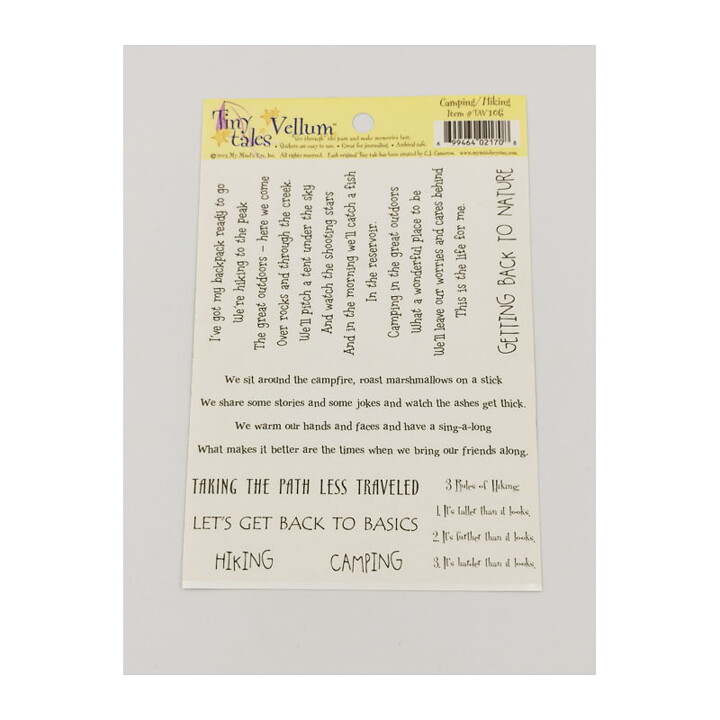 Tiny
tales Vellum™
Camping/Hiking
Item #TAV106
"See through" the past and make memories last.
• Stickers are easy to use. • Great for journaling. • Archival safe.
©2003 My Mind's Eye, Inc. All rights reserved. Each original Tiny tale has been created by C.J. Cameron. www.mymindseyeinc.com
6 99464 02170 8
I've got my backpack ready to go
We're hiking to the peak
The great outdoors – here we come
Over rocks and through the creek.
We'll pitch a tent under the sky
And watch the shooting stars
And in the morning we'll catch a fish
In the reservoir.
Camping in the great outdoors
What a wonderful place to be
We'll leave our worries and cares behind
This is the life for me.
GETTING BACK TO NATURE
We sit around the campfire, roast marshmallows on a stick
We share some stories and some jokes and watch the ashes get thick.
We warm our hands and faces and have a sing-a-long
What makes it better are the times when we bring our friends along.
TAKING THE PATH LESS TRAVELED
LET'S GET BACK TO BASICS
HIKING CAMPING
3 Rules of Hiking:
1. It's taller than it looks.
2. It's farther than it looks.
3. It's harder than it looks.